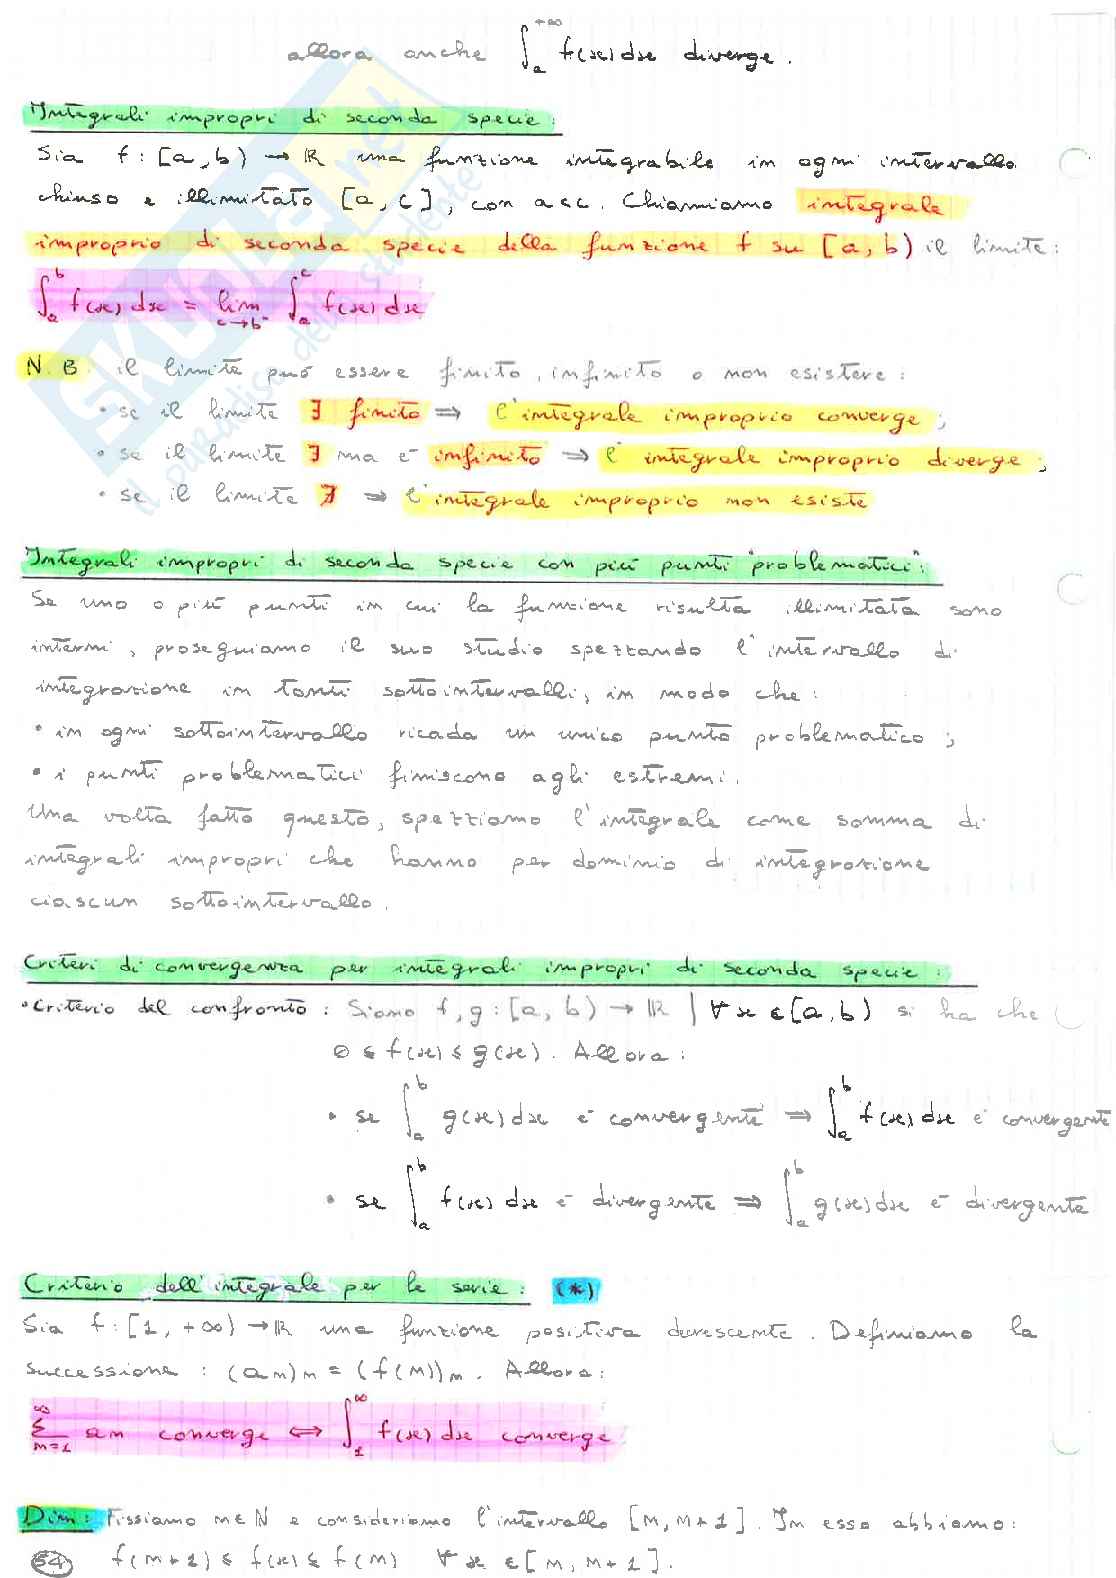 allora anche ∫ₐ^{+∞} f(x) dx diverge.
Integrali impropri di seconda specie:
Sia f: [a, b) → ℝ una funzione integrabile in ogni intervallo
chiuso e illimitato [a, c], con a<c. Chiamiamo integrale
improprio di seconda specie della funzione f su [a, b) il limite:
∫ₐ^b f(x) dx = lim_{c→b⁻} ∫ₐ^c f(x) dx
N.B. il limite può essere finito, infinito o non esistere:
• se il limite ∃ finito ⇒ l'integrale improprio converge;
• se il limite ∃ ma è infinito ⇒ l'integrale improprio diverge;
• se il limite ∄ ⇒ l'integrale improprio non esiste
Integrali impropri di seconda specie con più punti "problematici":
Se uno o più punti in cui la funzione risulta illimitata sono
interni, proseguiamo il suo studio spezzando l'intervallo di
integrazione in tanti sottointervalli, in modo che:
• in ogni sottointervallo ricada un unico punto problematico;
• i punti problematici finiscono agli estremi.
Una volta fatto questo, spezziamo l'integrale come somma di
integrali impropri che hanno per dominio di integrazione
ciascun sottointervallo.
Criteri di convergenza per integrali impropri di seconda specie:
• Criterio del confronto: Siano f, g: [a, b) → ℝ | ∀ x ∈ [a, b) si ha che
0 ≤ f(x) ≤ g(x). Allora:
• se ∫ₐ^b g(x) dx è convergente ⇒ ∫ₐ^b f(x) dx è convergente
• se ∫ₐ^b f(x) dx è divergente ⇒ ∫ₐ^b g(x) dx è divergente
Criterio dell'integrale per le serie: (*)
Sia f: [1, +∞) → ℝ una funzione positiva decrescente. Definiamo la
successione: (an)n = (f(n))n. Allora:
∑_{n=1}^∞ an converge ⇔ ∫₁^∞ f(x) dx converge
Dim: Fissiamo n∈ℕ e consideriamo l'intervallo [n, n+1]. In esso abbiamo:
54 f(n+1) ≤ f(x) ≤ f(n) ∀ x ∈ [n, n+1].
SKUOLA.net
il paradiso dello studente